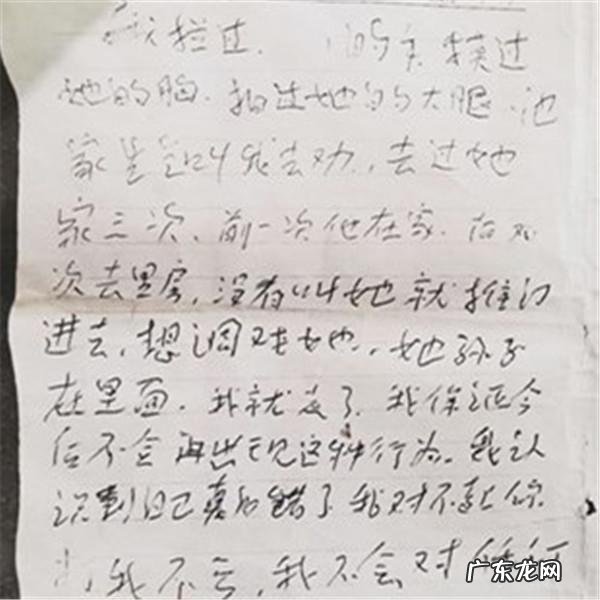 我拦过. 的手摸过
她的胸.拍过她的大腿.他
家里叫我去劝,去过她
家三次,前一次他在家.后两
次去里房,没有叫她就推门
进去,想调戏她,她孙子
在里面.我就走了.我保证今
后不会再出现这种行为.我认
识到自己真的错了我对不起你
打我不亏,我不会对
广东龙网